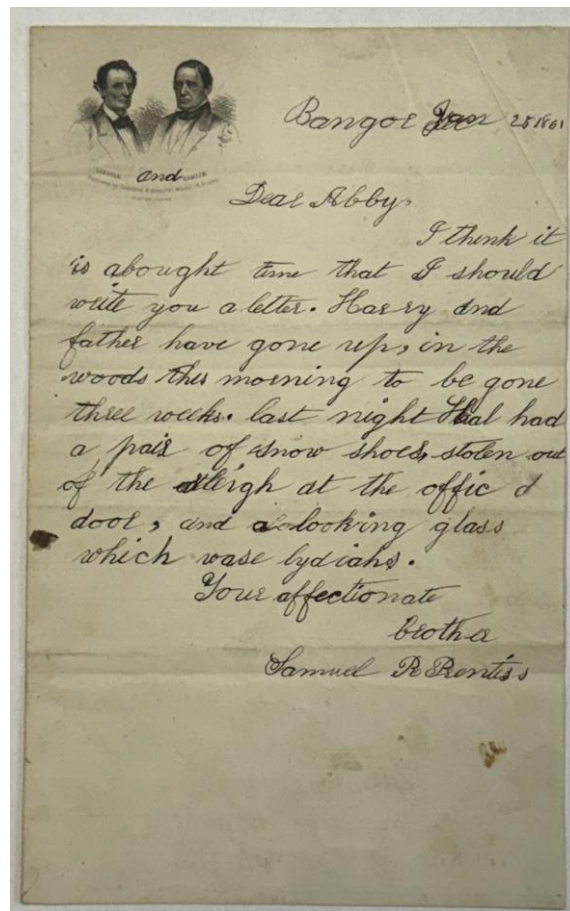 LINCOLN and HAMLIN
Bangor Jan 25 1861
Dear Abby,
I think it
is abought time that I should
write you a letter. Harry and
father have gone up, in the
woods this morning to be gone
three weeks. last night Hal had
a pair of snow shoes, stolen out
of the sleigh at the offic d
door, and a looking glass
which wase lydiahs.
Your affectionate
brother
Samuel R Prentiss